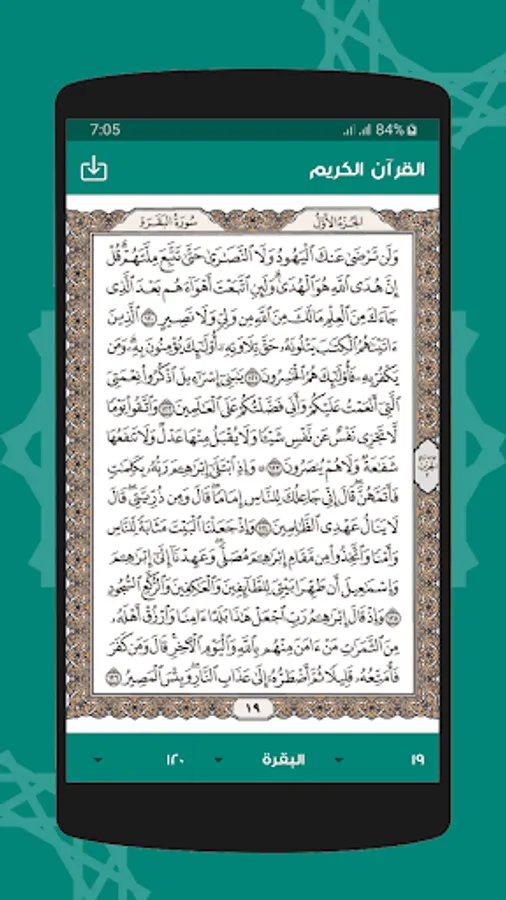 7:05 84%
القرآن الكريم
سُورَةُ الْبَقَرَةِ الجُزءُ الأَوَّلُ
وَلَن تَرْضَىٰ عَنكَ ٱلْيَهُودُ وَلَا ٱلنَّصَٰرَىٰ حَتَّىٰ تَتَّبِعَ مِلَّتَهُمْ ۗ قُلْ
إِنَّ هُدَى ٱللَّهِ هُوَ ٱلْهُدَىٰ ۗ وَلَئِنِ ٱتَّبَعْتَ أَهْوَآءَهُم بَعْدَ ٱلَّذِى
جَآءَكَ مِنَ ٱلْعِلْمِ ۙ مَا لَكَ مِنَ ٱللَّهِ مِن وَلِىٍّ وَلَا نَصِيرٍ ١٢٠ ٱلَّذِينَ
ءَاتَيْنَٰهُمُ ٱلْكِتَٰبَ يَتْلُونَهُۥ حَقَّ تِلَاوَتِهِۦٓ أُو۟لَٰٓئِكَ يُؤْمِنُونَ بِهِۦ ۗ وَمَن
يَكْفُرْ بِهِۦ فَأُو۟لَٰٓئِكَ هُمُ ٱلْخَٰسِرُونَ ١٢١ يَٰبَنِىٓ إِسْرَٰٓءِيلَ ٱذْكُرُوا۟ نِعْمَتِىَ
ٱلَّتِىٓ أَنْعَمْتُ عَلَيْكُمْ وَأَنِّى فَضَّلْتُكُمْ عَلَى ٱلْعَٰلَمِينَ ١٢٢ وَٱتَّقُوا۟ يَوْمًا
لَّا تَجْزِى نَفْسٌ عَن نَّفْسٍ شَيْـًٔا وَلَا يُقْبَلُ مِنْهَا عَدْلٌ وَلَا تَنفَعُهَا
شَفَٰعَةٌ وَلَا هُمْ يُنصَرُونَ ١٢٣ ۞ وَإِذِ ٱبْتَلَىٰٓ إِبْرَٰهِـۧمَ رَبُّهُۥ بِكَلِمَٰتٍ
فَأَتَمَّهُنَّ ۖ قَالَ إِنِّى جَاعِلُكَ لِلنَّاسِ إِمَامًا ۖ قَالَ وَمِن ذُرِّيَّتِى ۖ قَالَ
لَا يَنَالُ عَهْدِى ٱلظَّٰلِمِينَ ١٢٤ وَإِذْ جَعَلْنَا ٱلْبَيْتَ مَثَابَةً لِّلنَّاسِ
وَأَمْنًا وَٱتَّخِذُوا۟ مِن مَّقَامِ إِبْرَٰهِـۧمَ مُصَلًّى ۖ وَعَهِدْنَآ إِلَىٰٓ إِبْرَٰهِـۧمَ
وَإِسْمَٰعِيلَ أَن طَهِّرَا بَيْتِىَ لِلطَّآئِفِينَ وَٱلْعَٰكِفِينَ وَٱلرُّكَّعِ ٱلسُّجُودِ
١٢٥ وَإِذْ قَالَ إِبْرَٰهِـۧمُ رَبِّ ٱجْعَلْ هَٰذَا بَلَدًا ءَامِنًا وَٱرْزُقْ أَهْلَهُۥ
مِنَ ٱلثَّمَرَٰتِ مَنْ ءَامَنَ مِنْهُم بِٱللَّهِ وَٱلْيَوْمِ ٱلْءَاخِرِ ۖ قَالَ وَمَن كَفَرَ
فَأُمَتِّعُهُۥ قَلِيلًا ثُمَّ أَضْطَرُّهُۥٓ إِلَىٰ عَذَابِ ٱلنَّارِ ۖ وَبِئْسَ ٱلْمَصِيرُ ١٢٦
١٩
١٩ البقرة ١٢٠